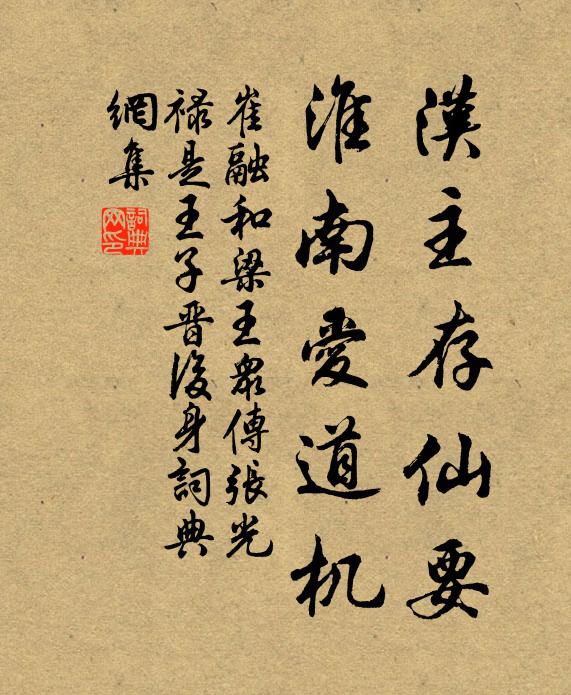 漢主存仙要
淮南愛道机
崔融和梁王眾傳張光
禄是王子晋後身詞典
網集
詞典網印